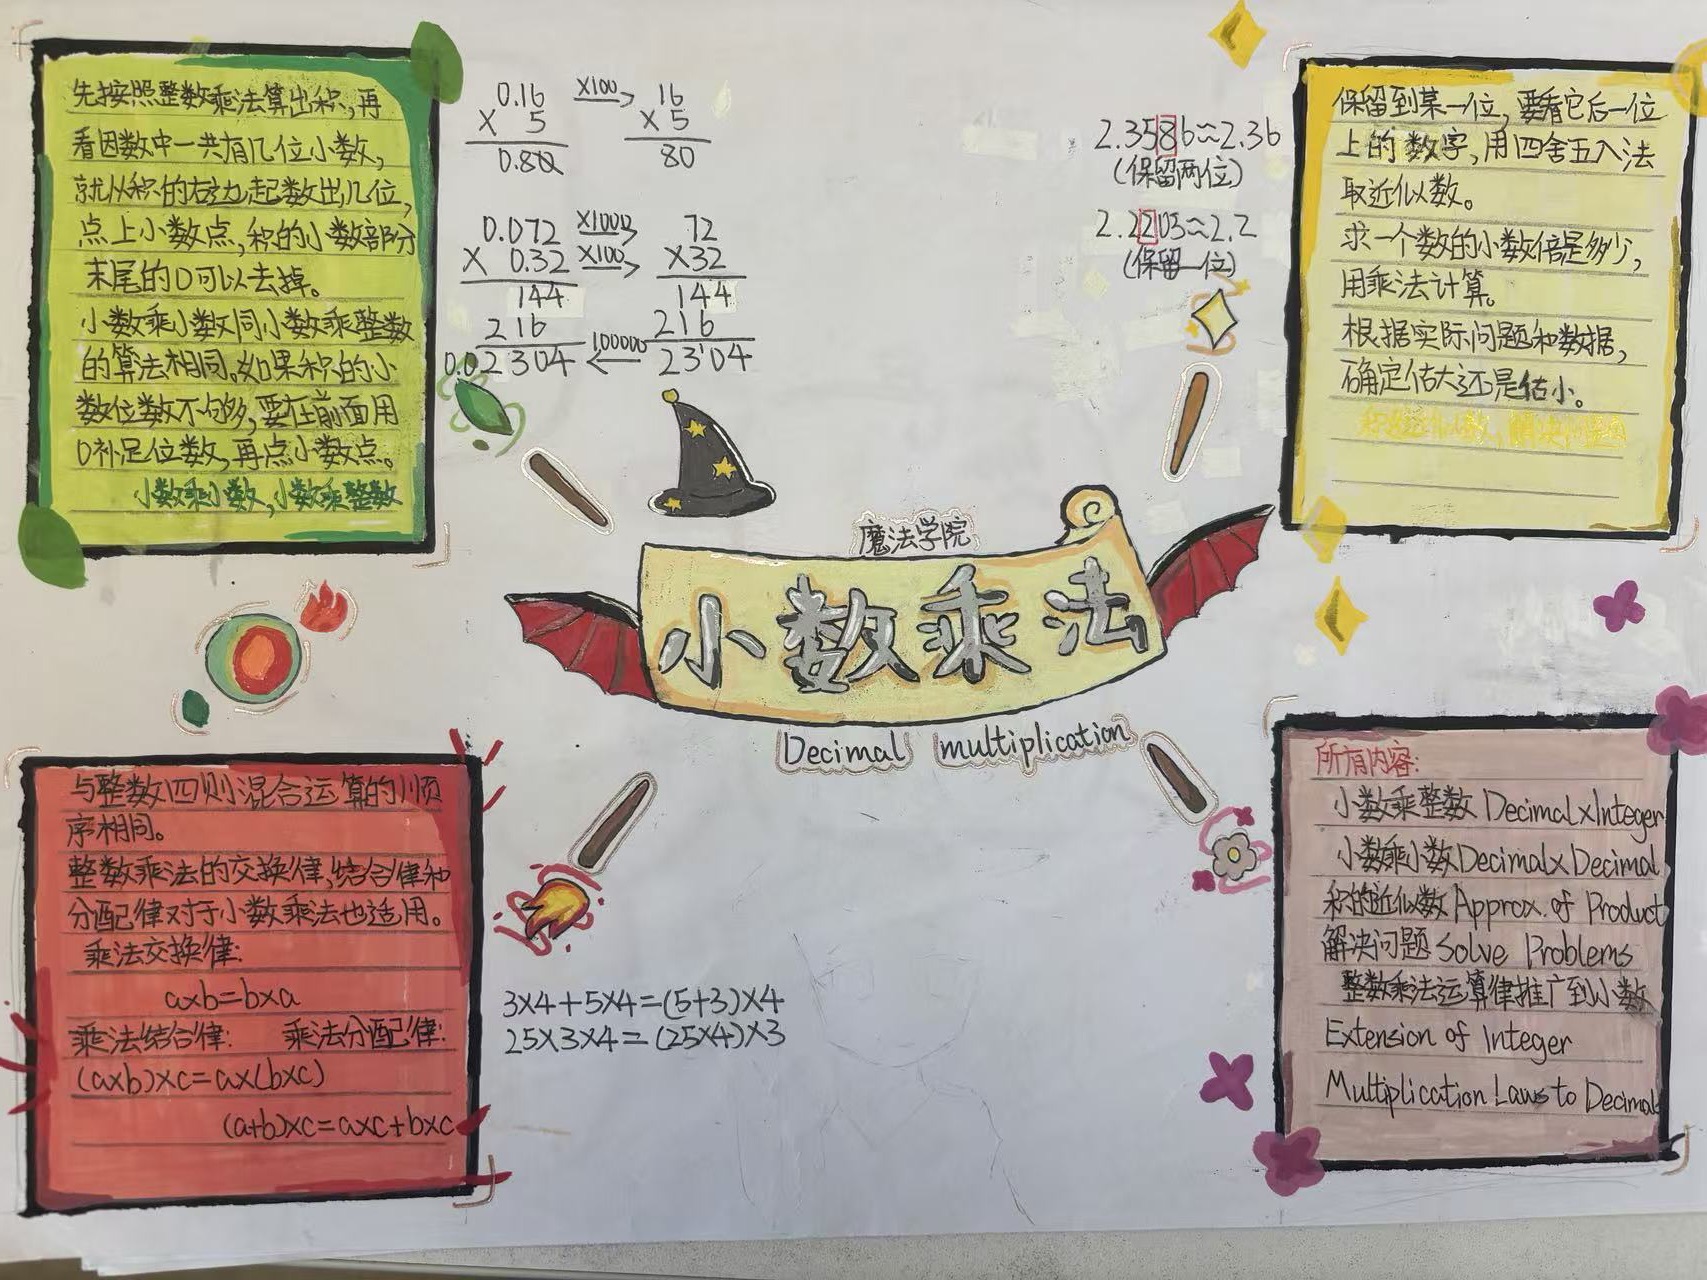 先按照整数乘法算出积,再
看因数中一共有几位小数,
就从积的右边起数出几位,
点上小数点,积的小数部分
末尾的0可以去掉。
小数乘小数同小数乘整数
的算法相同。如果积的小
数位数不够,要在前面用
0补足位数,再点小数点。
小数乘小数,小数乘整数
0.16 ×100 16
× 5 × 5
0.80 80
0.072 ×1000 72
× 0.32 ×100 ×32
144 144
216 216
0.02304 100000 2304
2.3586≈2.36
(保留两位)
2.2203≈2.2
(保留一位)
保留到某一位,要看它后一位
上的数字,用四舍五入法
取近似数。
求一个数的小数倍是多少,
用乘法计算。
根据实际问题和数据,
确定估大还是估小。
积的近似数,解决问题
魔法学院
小数乘法
Decimal multiplication
与整数四则混合运算的顺
序相同。
整数乘法的交换律,结合律和
分配律对于小数乘法也适用。
乘法交换律:
a×b=b×a
乘法结合律: 乘法分配律:
(a×b)×c=a×(b×c)
(a+b)×c=a×c+b×c
3×4+5×4=(5+3)×4
25×3×4=(25×4)×3
所有内容:
小数乘整数 Decimal×Integer
小数乘小数 Decimal×Decimal
积的近似数 Approx. of Product
解决问题 Solve Problems
整数乘法运算律推广到小数
Extension of Integer
Multiplication Laws to Decimal